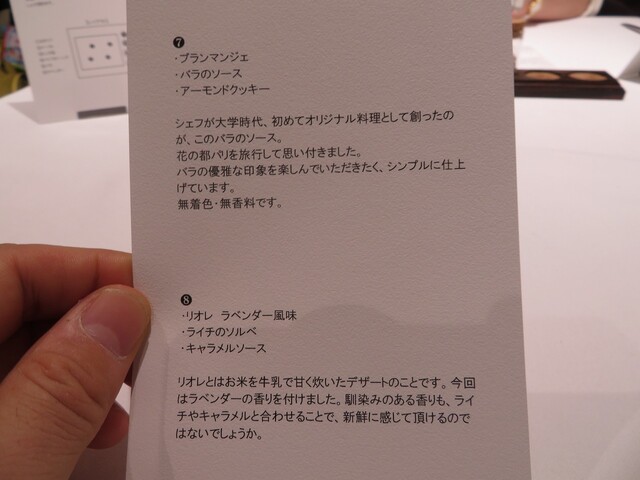 ❼
・ブランマンジェ
・バラのソース
・アーモンドクッキー
シェフが大学時代、初めてオリジナル料理として創ったの
が、このバラのソース。
花の都パリを旅行して思い付きました。
バラの優雅な印象を楽しんでいただきたく、シンプルに仕上
げています。
無着色・無香料です。
❽
・リオレ　ラベンダー風味
・ライチのソルベ
・キャラメルソース
リオレとはお米を牛乳で甘く炊いたデザートのことです。今回
はラベンダーの香りを付けました。馴染みのある香りも、ライ
チやキャラメルと合わせることで、新鮮に感じて頂けるので
はないでしょうか。